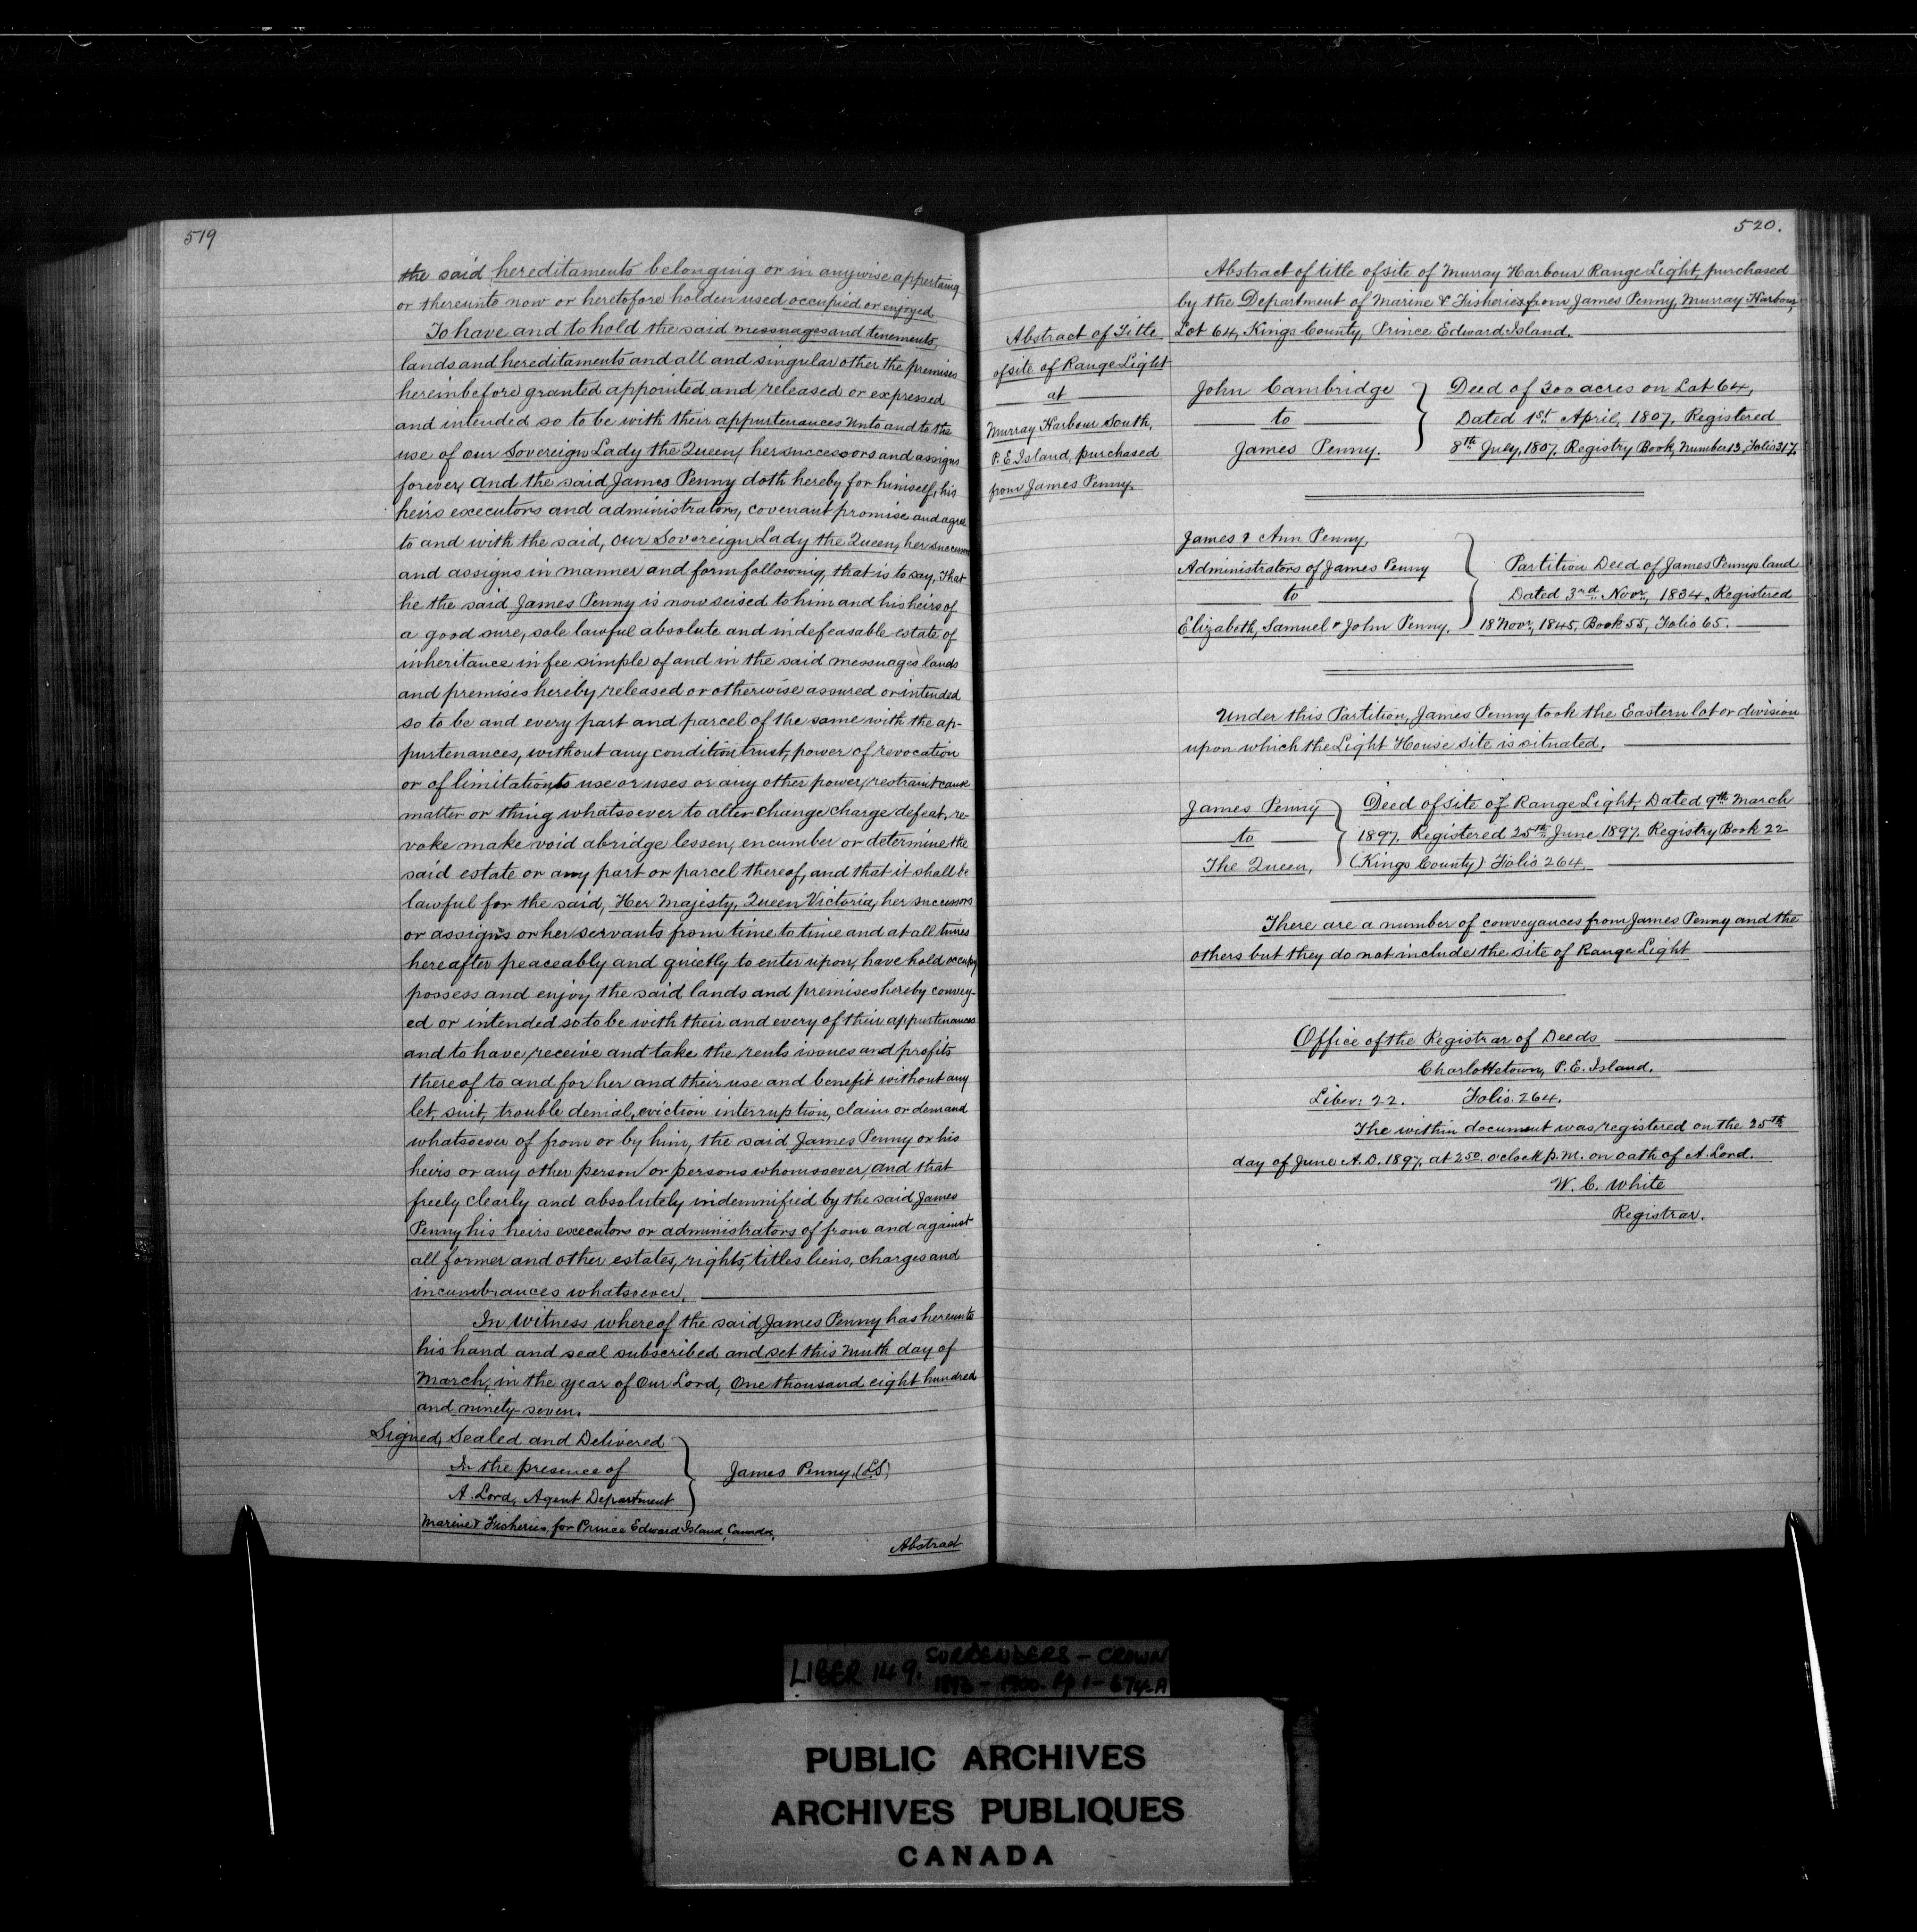 519
the said hereditaments belonging or in anywise appertaing
or thereunto now or heretofore holden used occupied or enjoyed
To have and to hold the said messuages and tenements,
lands and hereditaments and all and singular other the premises
hereinbefore granted appointed and released or expressed
and intended so to be with their appurtenances unto and to the
use of our Sovereign Lady the Queen, her successors and assigns
forever, And the said James Penny doth hereby for himself, his
heirs executors and administrators, covenant promise and agree
to and with the said, Our Sovereign Lady the Queen, her successors
and assigns in manner and form following, that is to say, That
he the said James Penny is now seised to him and his heirs of
a good sure, sole lawful absolute and indefeasable estate of
inheritance in fee simple of and in the said messuages lands
and premises hereby released or otherwise assured or intended
so to be and every part and parcel of the same with the ap-
purtenances, without any condition trust, power of revocation
or of limitation to use or uses or any other power, restraint cause
matter or thing whatsoever to alter change charge defeat, re-
voke make void abridge lessen, encumber or determine the
said estate or any part or parcel thereof, and that it shall be
lawful for the said, Her Majesty, Queen Victoria, her successors
or assigns or her servants from time to time and at all times
hereafter peaceably and quietly to enter upon, have hold occupy
possess and enjoy the said lands and premises hereby convey-
ed or intended so to be with their and every of their appurtenances
and to have, receive and take the rents issues and profits
thereof to and for her and their use and benefit without any
let, suit, trouble denial, eviction interruption, claim or demand
whatsoever of from or by him, the said James Penny or his
heirs or any other person or persons whomsoever, and that
freely clearly and absolutely indemnified by the said James
Penny his heirs executors or administrators of from and against
all former and other estates, rights, titles liens, charges and
incumbrances whatsoever.
In Witness whereof the said James Penny has hereunto
his hand and seal subscribed and set this ninth day of
March, in the year of Our Lord, One thousand eight hundred
and ninety-seven.
Signed, Sealed and Delivered
In the presence of
A. Lord, Agent Department
Marine & Fisheries, for Prince Edward Island, Canada.
James Penny (LS)
Abstract
520.
Abstract of Title
of site of Range Light
at
Murray Harbour South,
P. E Island, purchased
from James Penny.
Abstract of title of site of Murray Harbour Range Light, purchased
by the Department of Marine & Fisheries from James Penny, Murray Harbour,
Lot 64, Kings County, Prince Edward Island.
John Cambridge
to
James Penny.
Deed of 300 acres on Lot 64,
Dated 1st April, 1807. Registered
8th July, 1807. Registry Book, Number 13, Folio 317.
James & Ann Penny,
Administrators of James Penny
to
Elizabeth, Samuel & John Penny.
Partition Deed of James Pennys land
Dated 3rd Novr. 1834. Registered
18 Novr, 1845, Book 55, Folio 65.
Under this Partition, James Penny took the Eastern lot or division
upon which the Light House site is situated.
James Penny
to
The Queen,
Deed of site of Range Light, Dated 9th March
1897. Registered 25th June 1897. Registry Book 22
(Kings County) Folio 264.
There are a number of conveyances from James Penny and the
others but they do not include the site of Range Light
Office of the Registrar of Deeds
Charlottetown, P. E. Island.
Liber: 22. Folio. 264.
The within document was registered on the 25th
day of June A. D. 1897. at 2.50. o'clock p. m. on oath of A. Lord.
W. C. White
Registrar.
LIBER 149. SURRENDERS - CROWN
1896 - 1900. Pp 1 - 674-A
PUBLIC ARCHIVES
ARCHIVES PUBLIQUES
CANADA